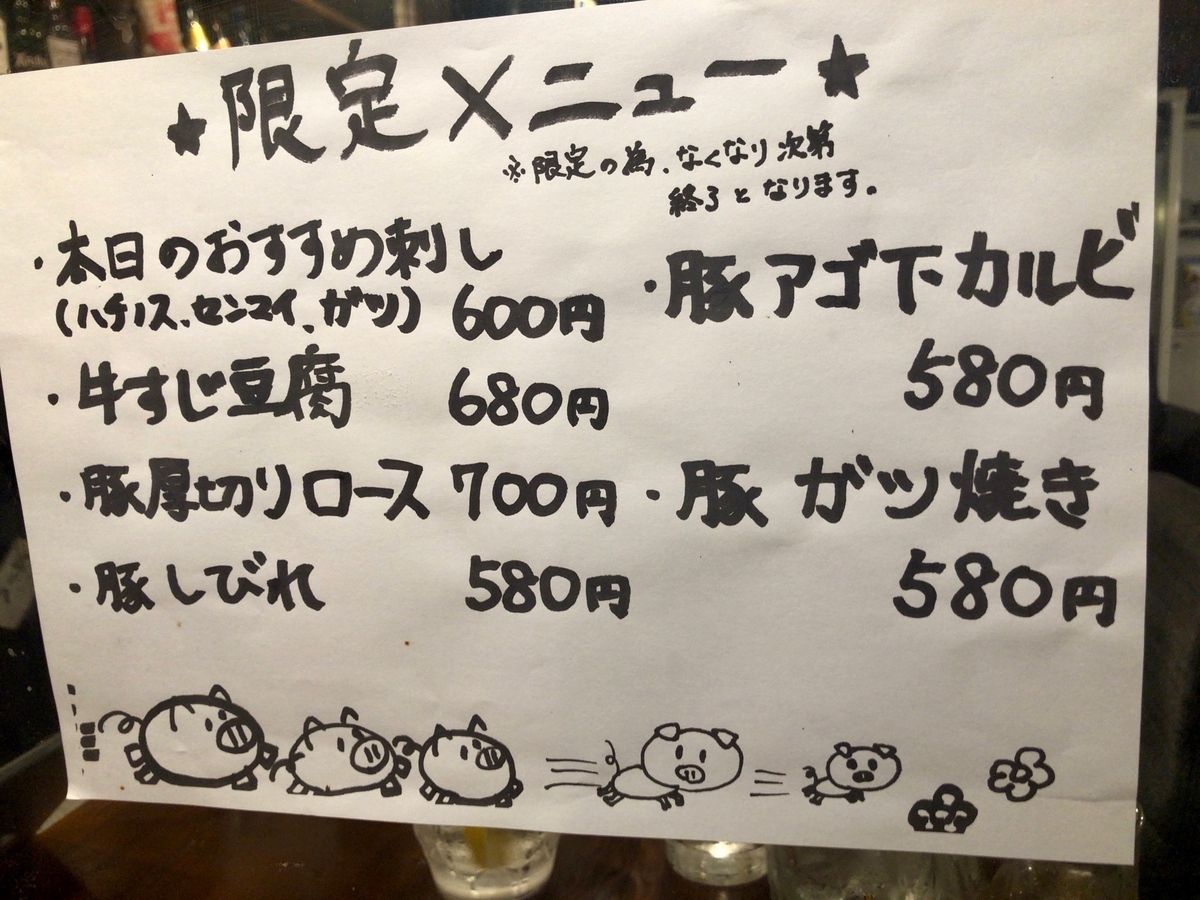 ★限定メニュー★
※限定の為、なくなり次第
終了となります。
・本日のおすすめ刺し
(ハチノス、センマイ、ガツ) 600円
・牛すじ豆腐 680円
・豚厚切りロース 700円
・豚しびれ 580円
・豚アゴ下カルビ
580円
・豚 ガツ焼き
580円